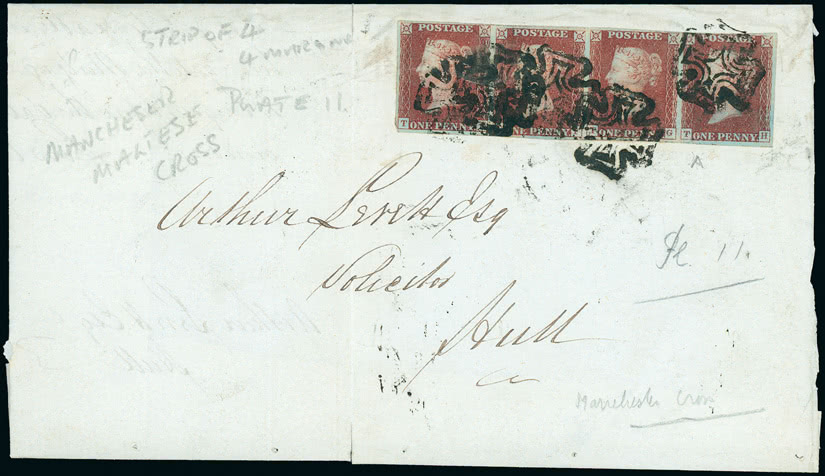 STRIP OF 4
4 MARGINS
PLATE 11.
MANCHESTER
MALTESE
CROSS
POSTAGE POSTAGE POSTAGE POSTAGE
T ONE PENNY ONE PENNY ONE PENNY G T ONE PENNY H
A
Arthur Levett Esq
Solicitor
Hull
Pl. 11.
Manchester Cross